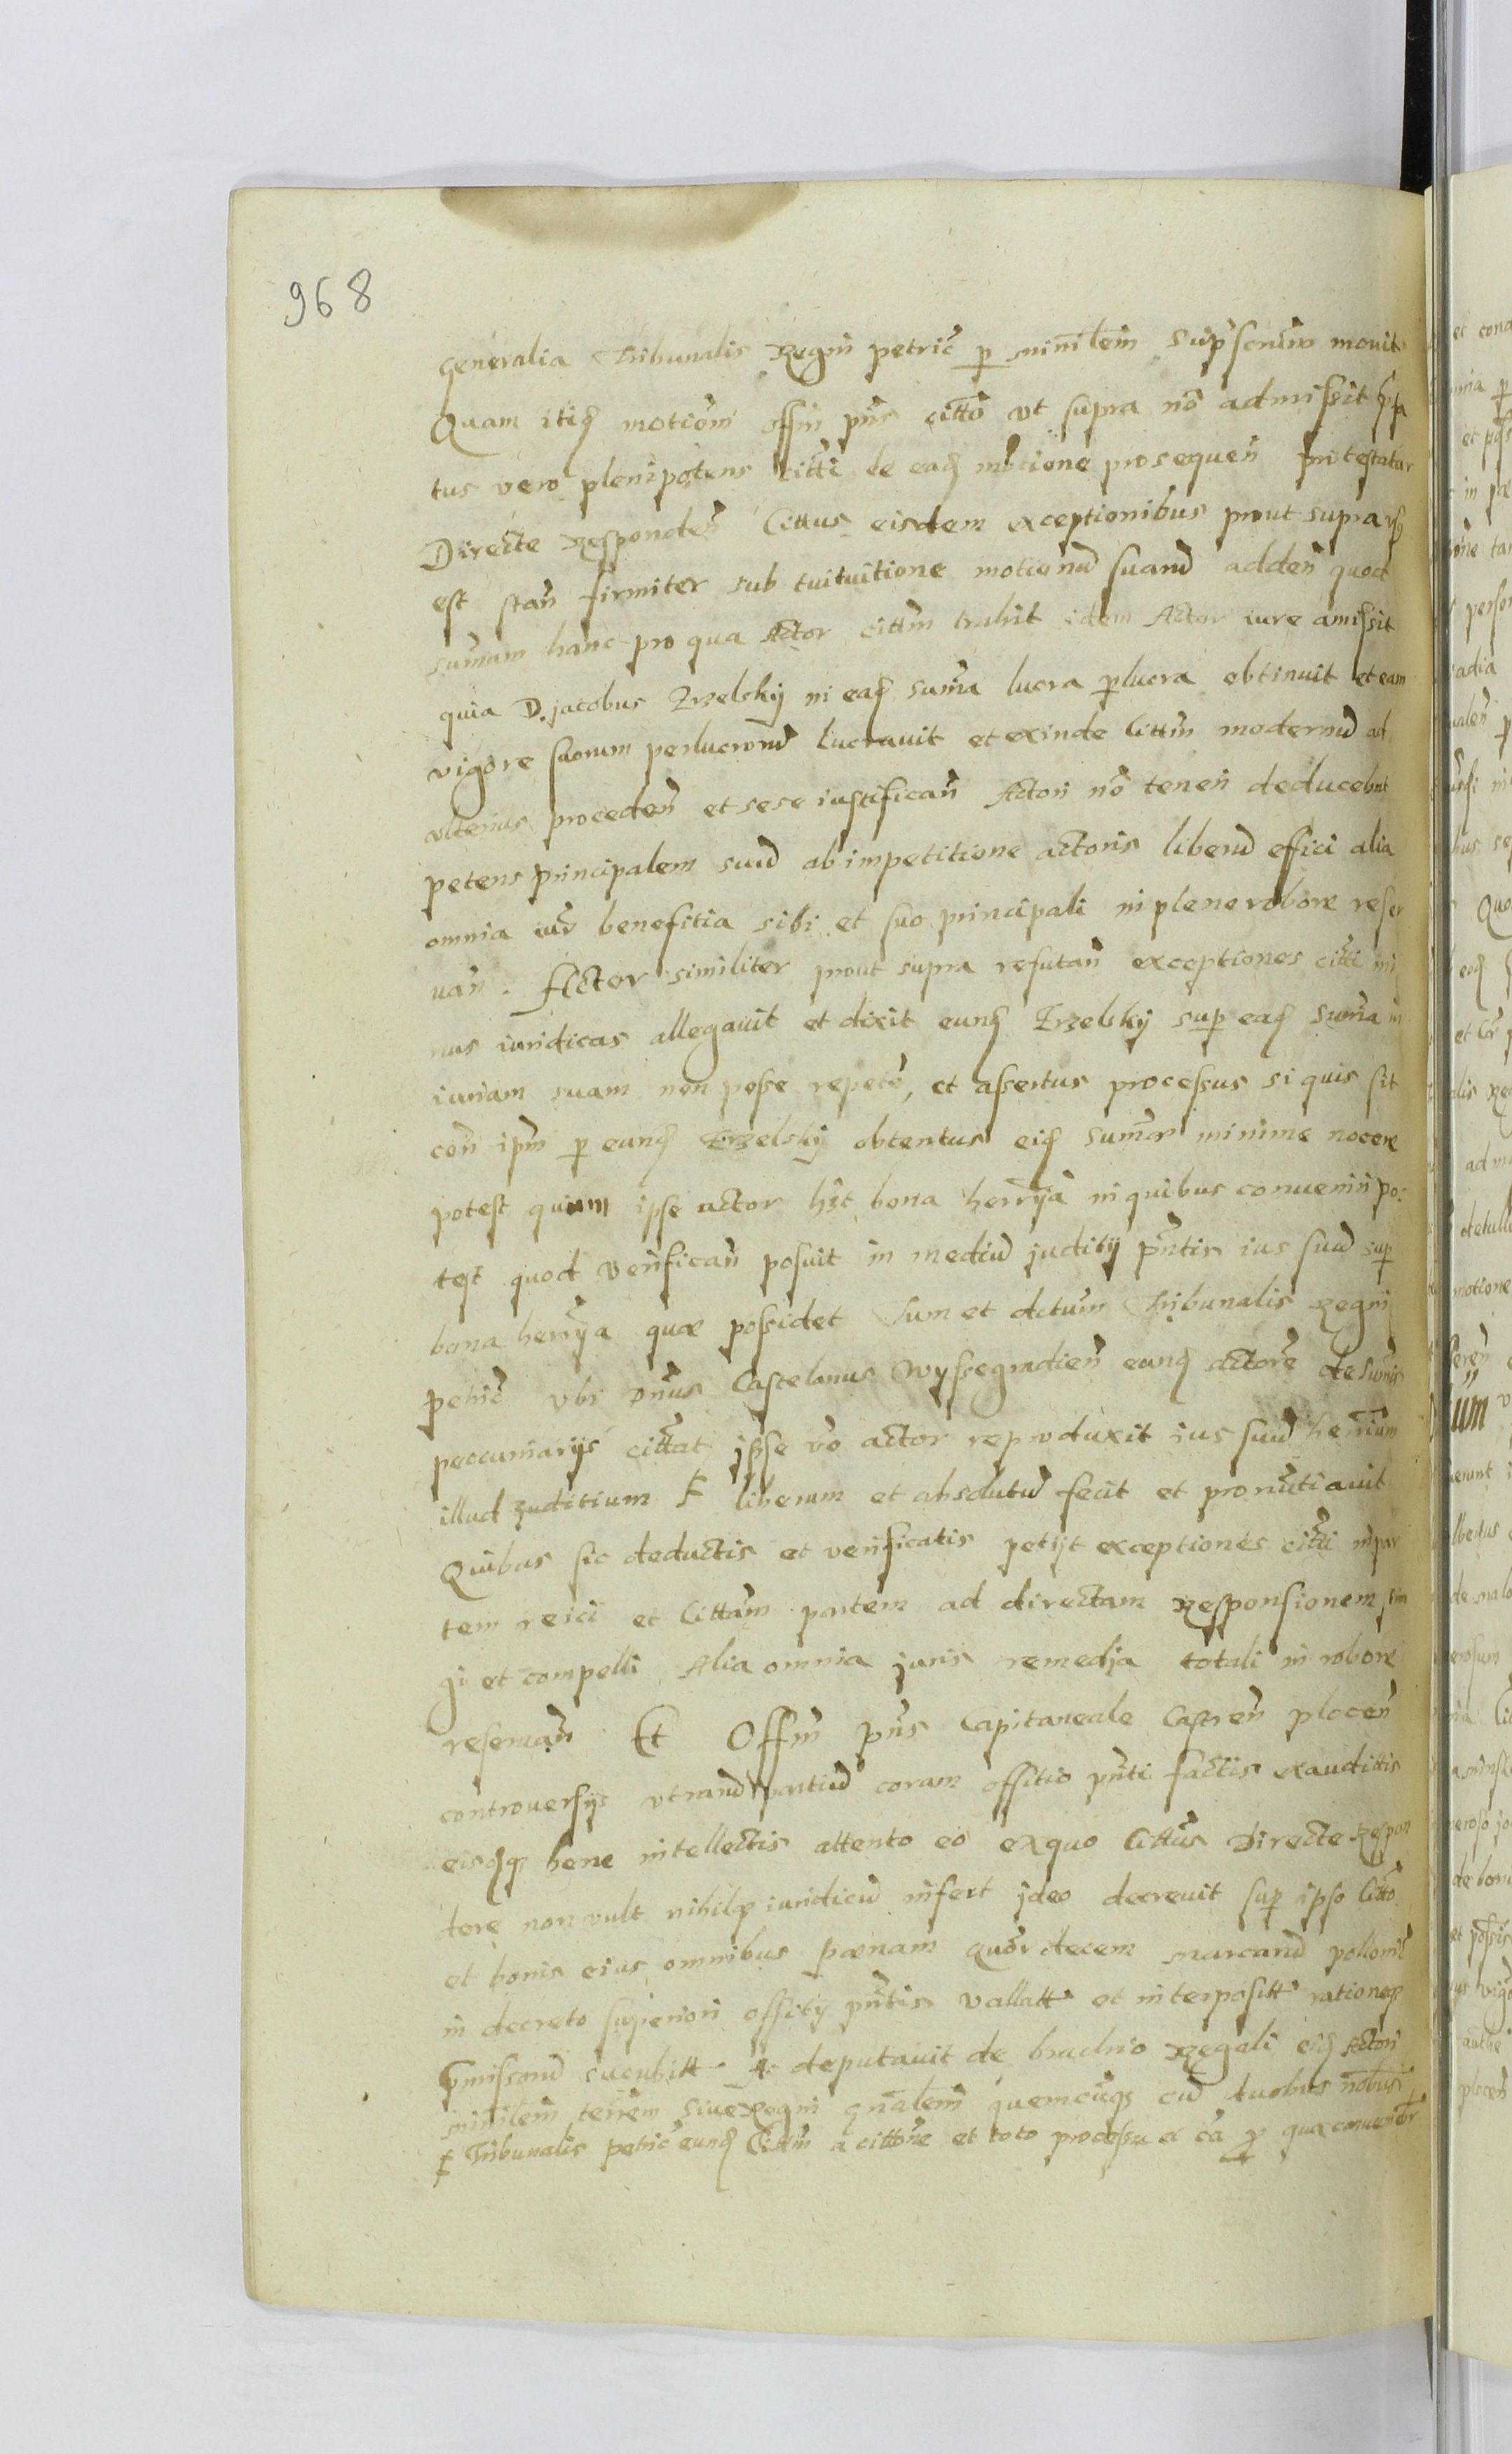 968
generalia Tribunalis Regni petric̃ p minĩlem supʼscriptum mouit
Quam itidq motiom̃ offm̃ pñs citto vt supra nõ admissit
tus vero plenipotens citti de eadq motione prosequeñ protestatur
Directe Respondeñ Cittus eisdem exceptionibus prout supra
est stañ firmiter sub tuituitione motionũ suarũ addeñ quod
sum̃am hanc pro qua Actor cittm̃ trahit idem Actor iure amissit
quia D. jacobus Erzelskÿ in eadq sum̃a lucra perlucra obtinuit et eam
vigore suorum perlucrorũ lucrauit et exinde Cittm̃ modernũ ad
vlterius procedeñ et sese iustificañ Actori nõ teneri deducebat
petens principalem suũ ab impetitione actoris liberũ effici alia
omnia iur̃ benefitia sibi et suo principali in pleno robore reser
uañ. Actor similiter prout supra refutañ exceptiones citti mi
nus iuridicas allegauit et dixit eundq Erzelskÿ sup eadq sum̃a in
iuriam suam non posse repete, et assertus processus si quis sit
coñ ipm̃ p eundq Erzelskÿ obtentus eidq sum̃ae minime nocere
potest quum ipse actor hẽt bona herrÿa in quibus conueniri po:
test quod verificañ posuit in mediũ juditÿ pñtis ius suũ sup
bona herrÿa quæ possidet Tum et dctum Tribunalis Regni
petric̃ vbi Dñus Castelanus Wyssegradieñ eundq actorẽ de sum̃is
peccuniarÿs cittat ipse vo actor reproduxit ius suũ herrium
illud Juditium F liberum et absolutũ fecit et pronũtiauit
Quibus sic deductis et verificatis petÿt exceptiones citti in par
tem reici et Cittam partem ad directam Responsionem strin
gi et compelli Alia omnia juris remedja totali in robore
reseruañ Et Offm̃ pñs Capitaneale Castreñ ploceñ
controuersÿs vtrarũ partiũ coram offitio pñti factis exaudittis
eisdqq bene intellectis attento eo exquo Cittus Directe Respon
dere non vult nihilq iuridicũ infert jdeo decreuit sup ipso Citto
et bonis eius omnibus pænam quõrdecem marcarũ pollonĩl
in decreto superiori offitÿ pñtis vallatt et interpositt rationeq
pmissorũ sucubitt Ac deputauit de brachio Regali eidq Actori
minĩlem terrem siue Regni gñalem quemcũqq cũ duobus nobus
F Tribunalis petric̃ eundq Cittm̃ a cittone et toto processu ac cã p qua conuenitr